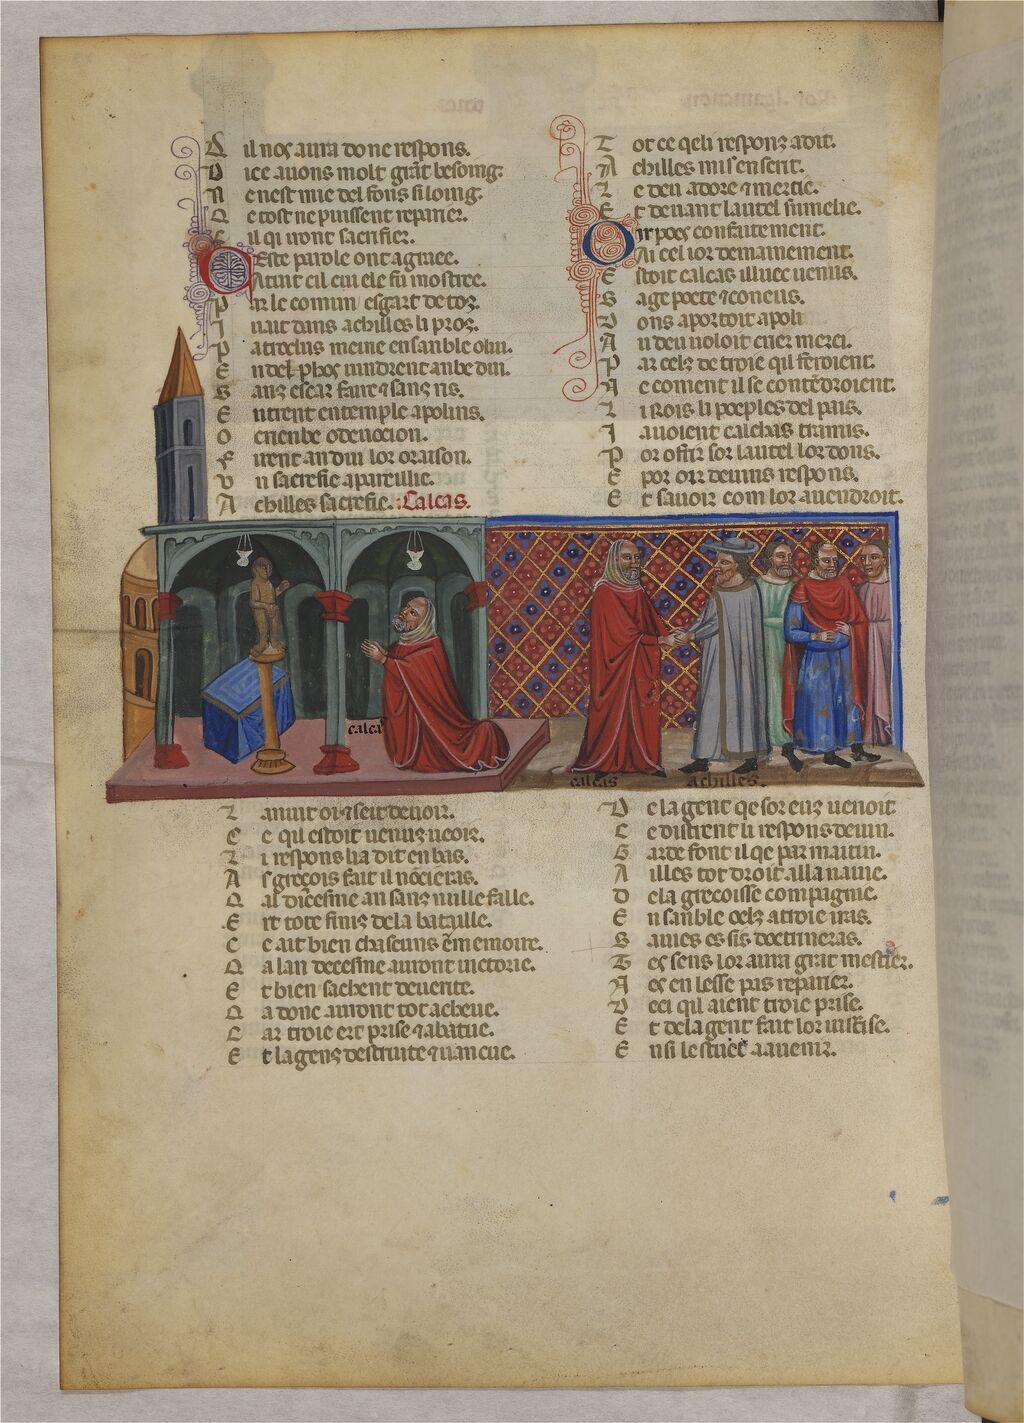 Q il nos aura done respons.
D ice auons molt grãt besoing.
N e nest mie del fons si loing.
Q e tost ne puissent repairier.
C il qi uont sacrifier.
C este parole ont agraee.
A tant cil cui ele fu mostree.
P ar le comun esgart de toz.
I uait dans achilles li proz.
P atroclus meine ensanble o lui.
E n delphos uindrent anbedui.
S anz escar faire & sanz ris.
E ntrent en temple apolinis.
O
F irent andui lor oraison.
V n sacrefie apareillie.
A chilles sacrefie. :Calcas.
T ot ce qeli respons a dit.
A chilles mis en escrit.
L e deu adore & mercie.
E t deuant lautel sumelie.
O ir poez confaitement.
A i cel ior demainement.
E stoit calcas illuec uenus.
S age poete & coneus.
D ons aportoit apoli
A u deu uoloit crier merci.
P ar celz de troie qil feroient.
E coment il se contẽdroient.
L i Rois li poeples del pais.
I auoient calchas tramis.
P or ofrir sor lautel lor dons.
E por oir deuins respons.
E t sauoir com lor auendroit.
calcas
calcas achilles.
L anuit oi & seit de uoir.
C e qi estoit uenuz ueoir.
L i respons li a dit en bas.
A s grecois fait il nõcieras.
Q al disesme an sanz nulle falle.
E rt tote finie de la bataille.
C e ait bien chascuns ẽ memoire.
Q a lan decesme auront uictorie.
E t bien sachent de uente.
Q a donc auront tot acheue.
C ar troie ert prise & abatue.
E t la genz destruite & uancue.
D e la gent qe sor euz uenoit
C e distrent li respons deuin.
G arde font il qe par maitin.
A illes tot droit alla nauie.
D e la grecoisse compagnie.
E n sanble celz a troie iras.
S auies es sis doctrineras.
T es sens lor aura grãt mestier.
A es en lesse pas repairier.
D eci qil aient troie prise.
E t de la gent fait lor iustise.
E nsi lestuet a auenir.